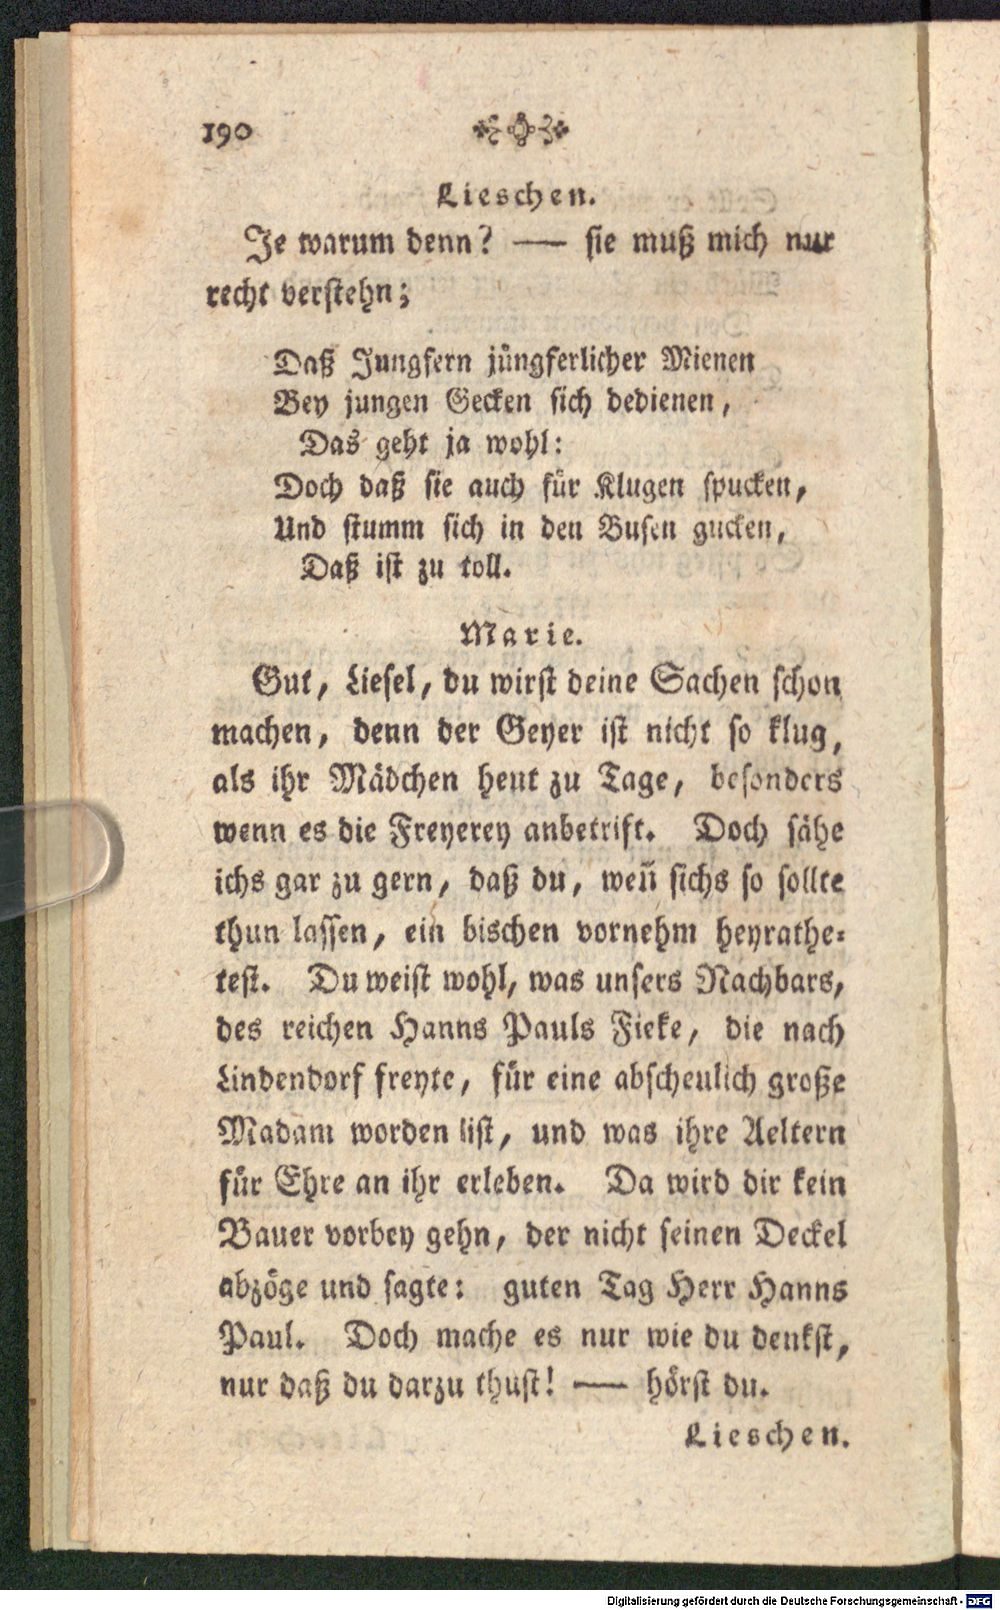 190
Lieschen.
Je warum denn? — sie muß mich nur
recht verstehn;
Daß Jungfern jüngferlicher Mienen
Bey jungen Gecken sich bedienen,
Das geht ja wohl:
Doch daß sie auch für Klugen spucken,
Und stumm sich in den Busen gucken,
Daß ist zu toll.
Marie.
Gut, Liesel, du wirst deine Sachen schon
machen, denn der Geyer ist nicht so klug,
als ihr Mädchen heut zu Tage, besonders
wenn es die Freyerey anbetrift. Doch sähe
ichs gar zu gern, daß du, weñ sichs so sollte
thun lassen, ein bischen vornehm heyrathe-
test. Du weist wohl, was unsers Nachbars,
des reichen Hanns Pauls Fieke, die nach
Lindendorf freyte, für eine abscheulich große
Madam worden ist, und was ihre Aeltern
für Ehre an ihr erleben. Da wird dir kein
Bauer vorbey gehn, der nicht seinen Deckel
abzöge und sagte: guten Tag Herr Hanns
Paul. Doch mache es nur wie du denkst,
nur daß du darzu thust! — hörst du.
Lieschen.
Digitalisierung gefördert durch die Deutsche Forschungsgemeinschaft - DFG